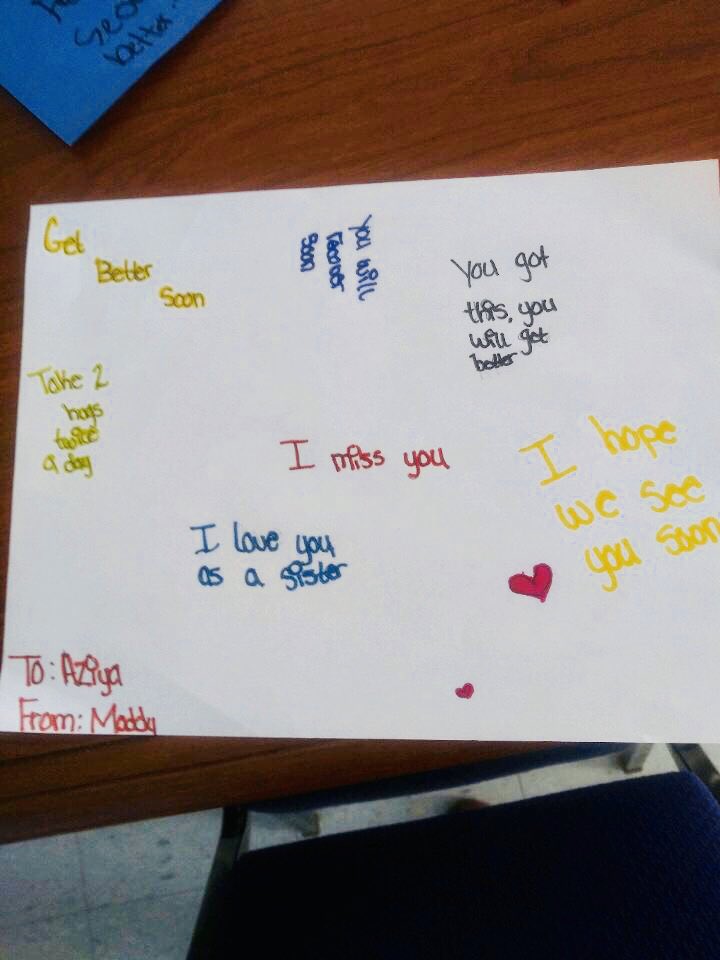 better
Get
Better
Soon
you will
soon
You got
this, you
will get
better
Take 2
hugs
twice
a day
I miss you
I hope
we see
you soon
I love you
as a sister
To: Aziya
From: Maddy